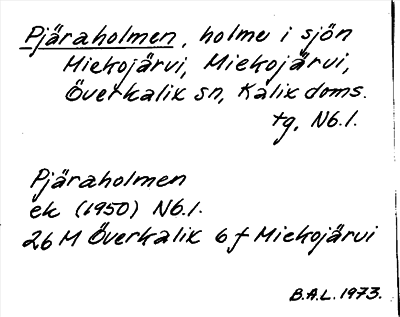 Pjäraholmen, holme i sjön
Miekojärvi, Miekojärvi,
Överkalix sn, Kalix doms.
tg, Nb.l.
Pjäraholmen
ek (1950) Nb.l.
26 M Överkalix 6 f Miekojärvi
B.A.L. 1973.